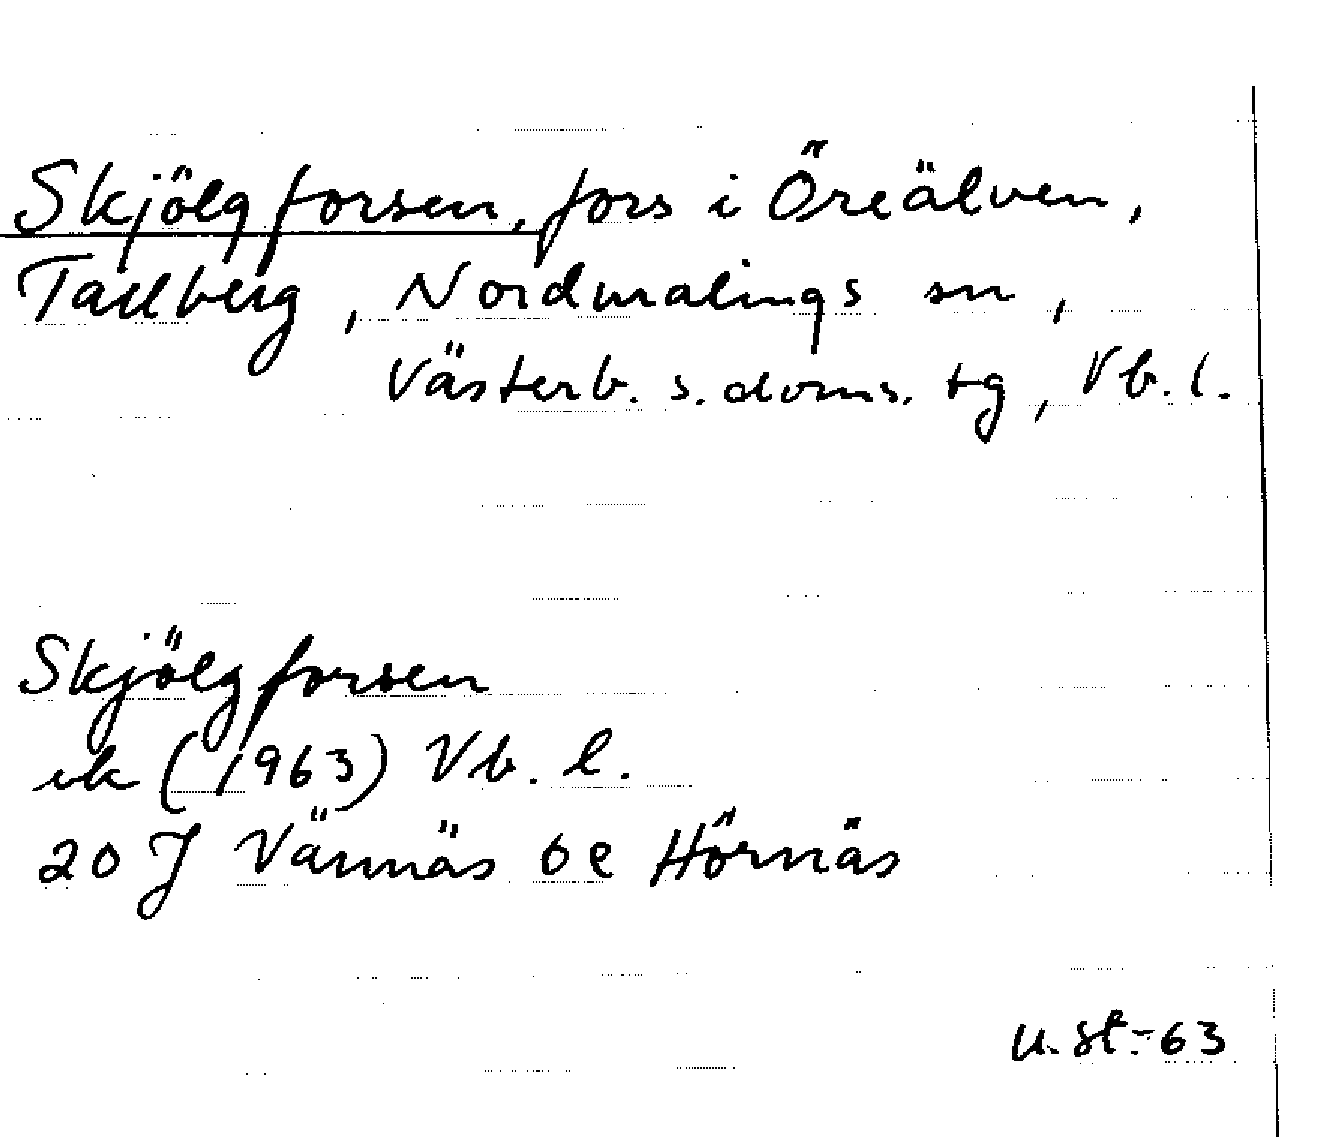 Skjölgforsen, fors i Öreälven,
Tallberg, Nordmalings sn,
Västerb. s. doms. tg, Vb. l.
Skjölgforsen
ek (1963) Vb. l.
20 J Vännäs 6e Hörnäs
U. St. -63